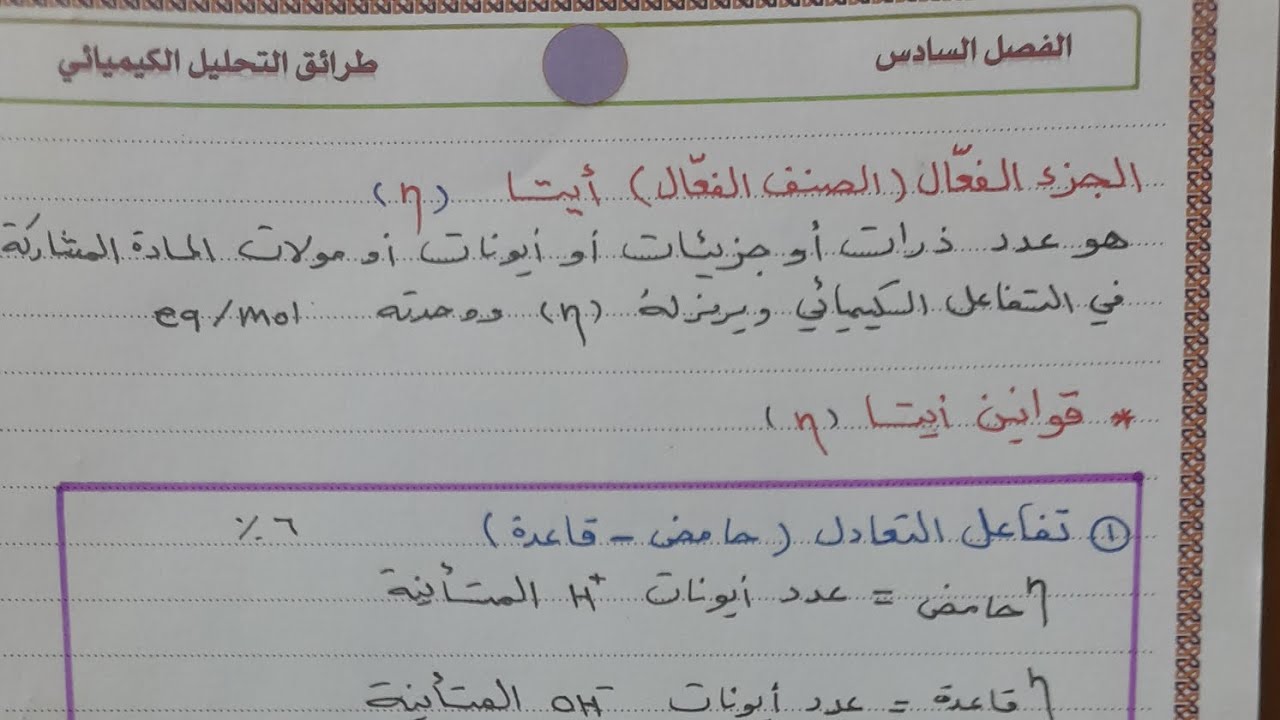 الفصل السادس
طرائق التحليل الكيميائي
الجزء الفعّال (الصنف الفعّال) أيتا (η)
هو عدد ذرات أو جزيئات أو أيونات أو مولات المادة المشاركة
في التفاعل الكيميائي ويرمز له (η) ووحدته eq/mol
* قوانين أيتا (η)
① تفاعل التعادل (حامض - قاعدة) ٦٪
η حامض = عدد أيونات H⁺ المتأينة
η قاعدة = عدد أيونات OH⁻ المتأينة